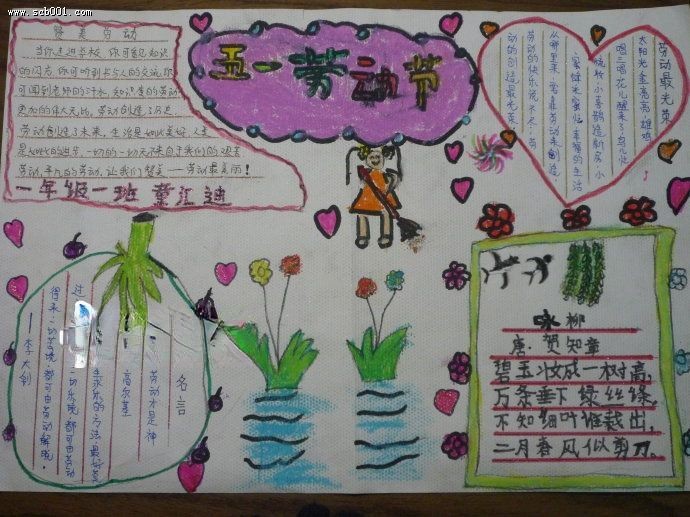 www.scb001.com
五一劳动节
赞美劳动
当你走进学校,你可见知识
的闪方,你可听到书与人的交流,你
可闻到老师的汗水,知识里的劳动
更加的伟大无比,劳动创造了历史,
劳动创造了未来,生活是如此美好,人生
是如此的进步,一切的一切
劳动,平凡的劳动,让我们赞美——劳动最美丽!
一年级一班 董汇迪
劳动最光荣
太阳光金亮亮,雄鸡
唱三唱,花儿醒来了,鸟儿忙
梳妆,小喜鹊造新房,小
蜜蜂采蜜忙,幸福的生活
从哪里来,要靠劳动来创造,
劳动的快乐说不尽,劳
动的创造最光荣。
名言
劳动永是神
高尔基
求乐的方法最好是
一切乐境,都可由劳动
得来,一切苦境,都可由劳动解脱。
——李大钊
咏柳
唐:贺知章
碧玉妆成一树高,
万条垂下绿丝绦。
不知细叶谁裁出,
二月春风似剪刀。